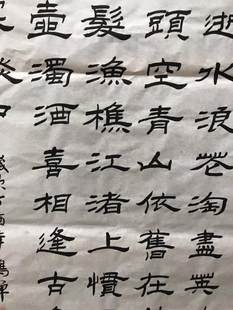 逝水浪花淘盡英
頭空青山依舊在
髮漁樵江渚上慣
壺濁酒喜相逢古
談中
歲次丁酉年